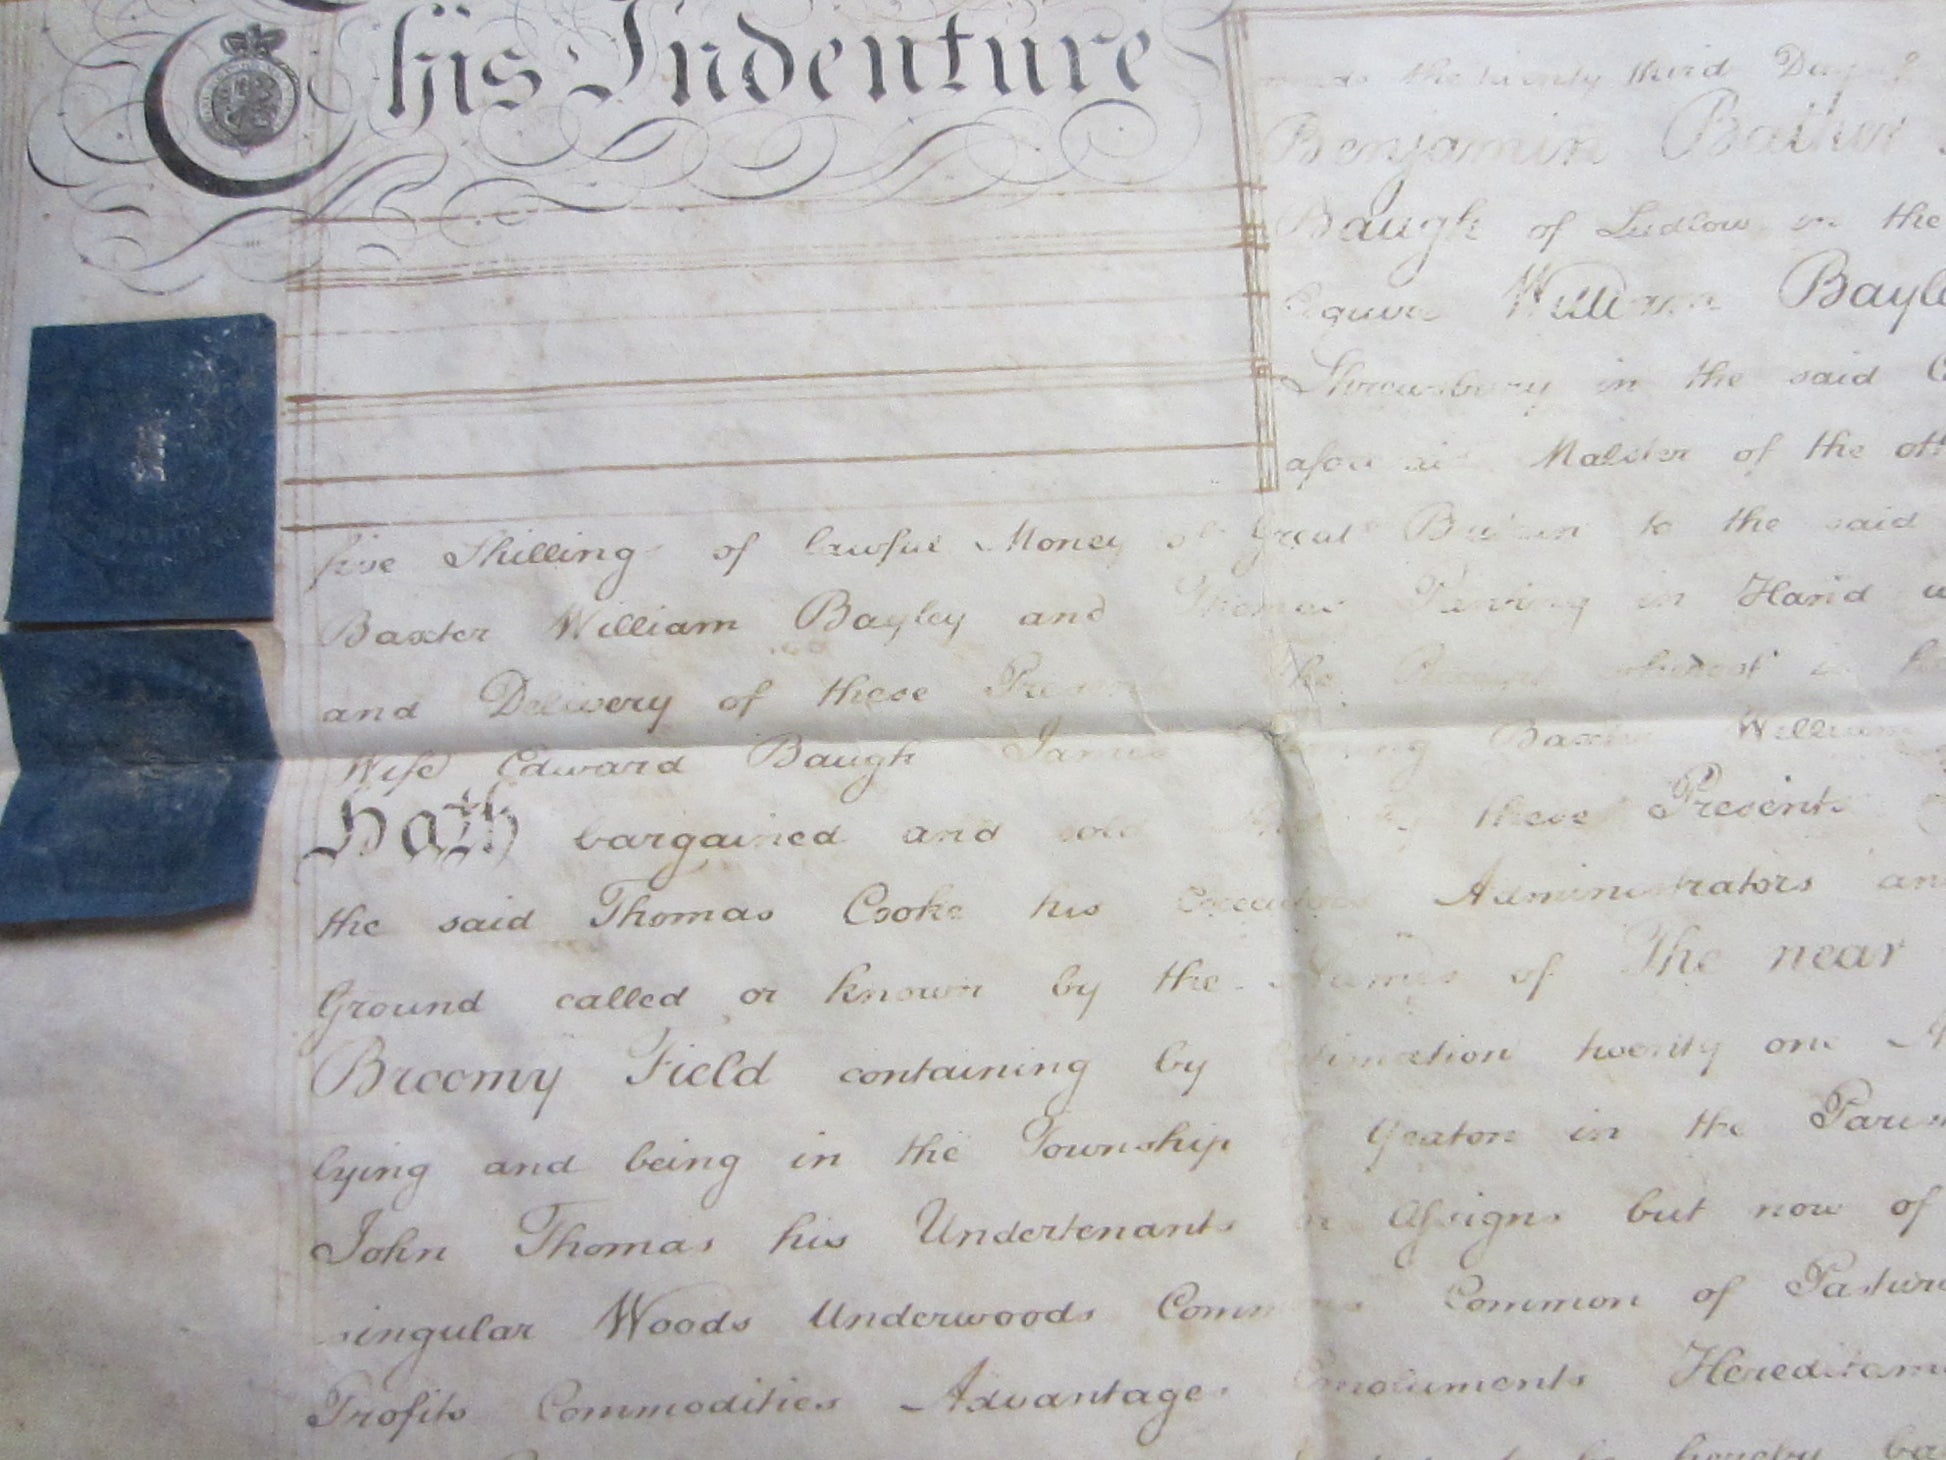 This Indenture
the twenty third Day
Benjamin
Baugh of Ludlow in the
Esquire William Bayle
Shrewsbury in the said
Malster of the oth
five Shillings of lawful Money of Great Britain to the said
Baxter William Bayley and Thomas in Hand
and Delivery of these Presents the Receipt whereof is
Wife Edward Baugh James Baxter William
Hath bargained and sold these Presents
the said Thomas Cooke his Executors Administrators an
Ground called or known by the Names of The near
Broomy Field containing by Estimation twenty one A
lying and being in the Township Yeaton in the Paris
John Thomas his Undertenants or Assigns but now of
singular Woods Underwoods Commons Common of Pasture
Profits Commodities Advantages Emoluments Hereditame
hereby ba